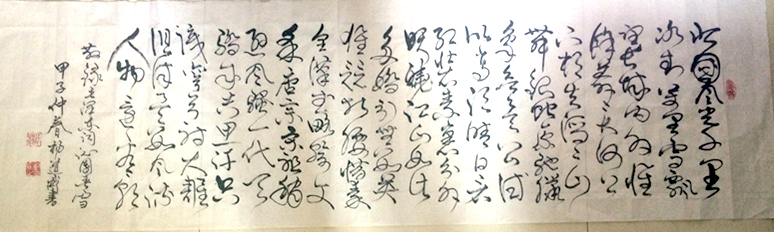 北国风光千里
冰封万里雪飘
望长城内外惟
余莽莽大河上
下顿失滔滔山
舞银蛇原驰腊
象欲与天公试
比高须晴日看
红装素裹分外
妖娆江山如此
多娇引无数英
雄竞折腰惜秦
皇汉武略输文
采唐宗宋祖稍
逊风骚一代天
骄成吉思汗只
识弯弓射大雕
俱往矣数风流
人物还看今朝
敬录毛泽东词沁园春雪
甲子仲春杨道书